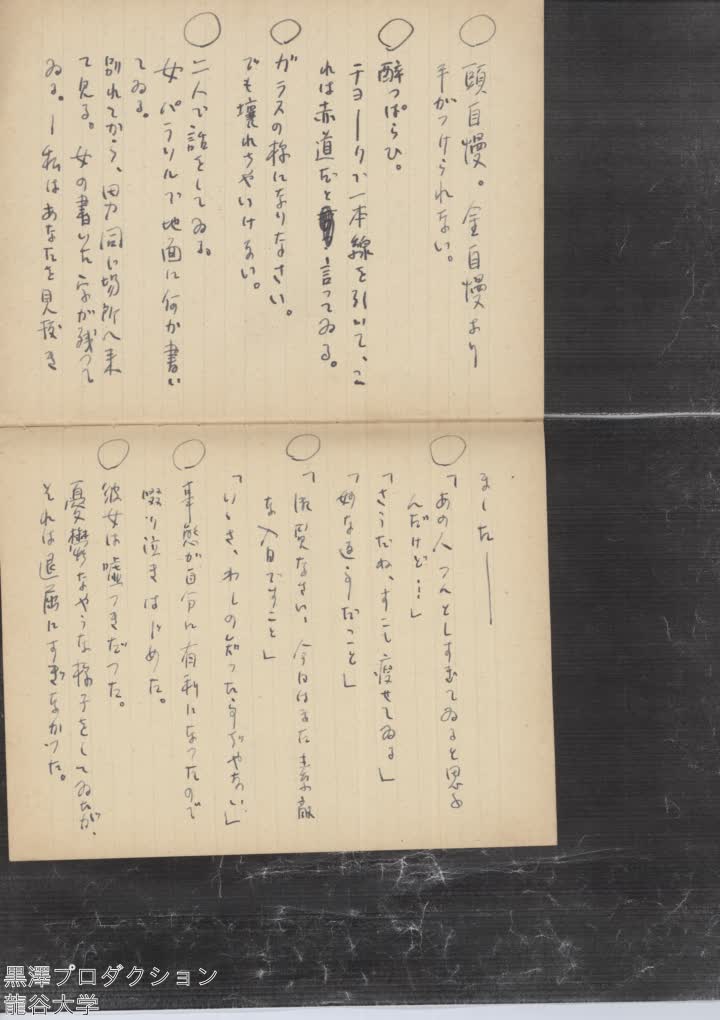 ○ 頭自慢。金自慢より
手がつけられない。
○ 酔っぱらひ。
チョークで一本線を引いて、こ
れは赤道だと言ってゐる。
○ ガラスの様になりなさい。
でも壊れちやいけない。
○ 二人で話をしてゐる。
女 パラソルで地面に何か書い
てゐる。
別れてから、男同じ場所へ来
て見る。女の書いた字が残って
ゐる。―私はあなたを見抜き
ました――
○ 「あの人つんとしすぎてゐると思ふ
んだけど…」
「さうだね、すこし痩せてゐる」
「妙な返事だこと」
○ 「御覧なさい、今日はまた素敵
な入日ですこと」
「いゝさ、わしの知った事ぢやない」
○ 事態が自分に有利になつたので
啜り泣きはじめた。
○ 彼女は嘘つきだつた。
憂欝なやうな様子をしてゐたが、
それは退屈にすぎなかつた。
黒澤プロダクション
龍谷大学